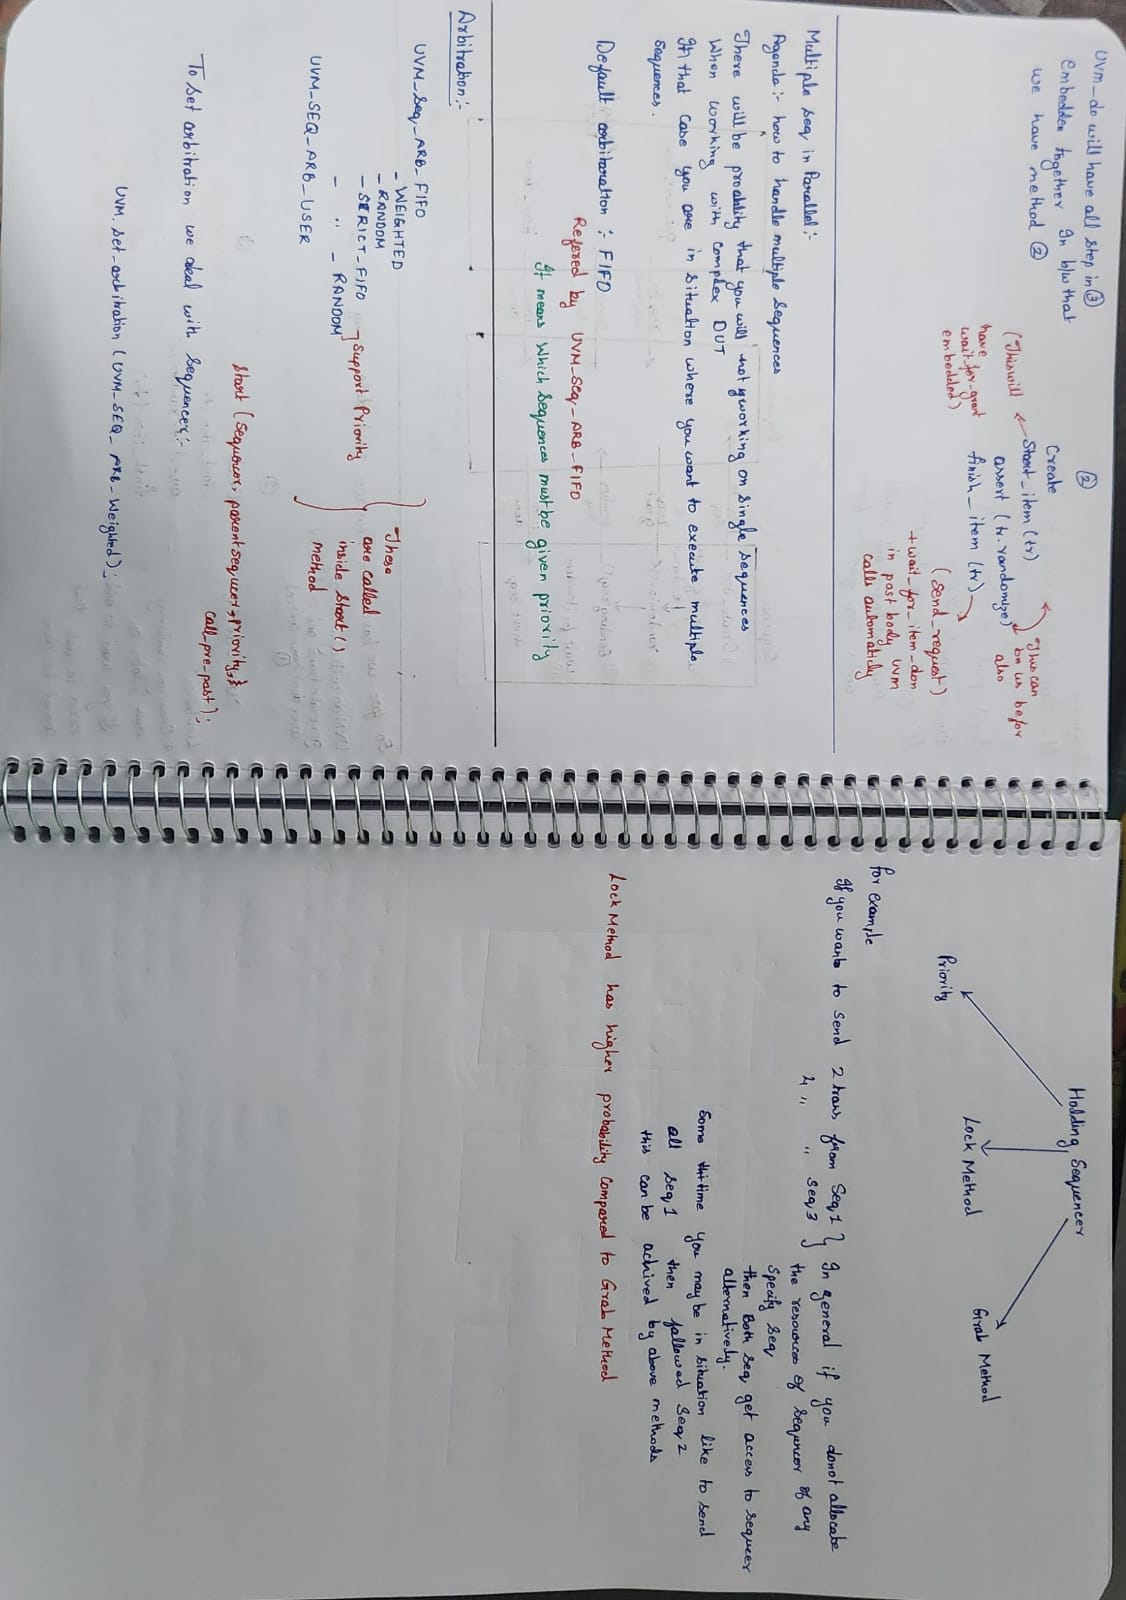 Uvm_do will have all step in ③
embedden together In b/w that
we have method ②
②
Create
Start_item (tr)
assert (tr.randomize)
finish_item (tr)
(This will
have
wait-for-grant
embedded)
This can
be us befor
also
(Send_request)
+ wait_for_item_don
in post body uvm
calls automaticly
Multiple Seq in Parallel :-
Agenda :- how to handle multiple Sequences
There will be probility that you will not working on Single Sequences
When working with complex DUT
In that Case you are in Situation where you want to execute multiple
Sequences.
Default arbitaration :- FIFO
Refered by UVM-Seq-ARB-FIFO
It means which Sequences must be given priority
Arbitration :-
UVM_Seq_ARB_FIFO
- WEIGHTED
- RANDOM
- SERICT_FIFO
- " - RANDOM
UVM_SEQ_ARB_USER
Support Priority
These
are called
inside start()
method
Start (Sequencer, parent sequcer, priority,
call_pre_past);
To Set arbitration we deal with Sequencer :-
UVM. Set_arbitration (UVM_SEQ_ARB_Weighted);
Holding Sequencer
Priority
Lock Method
Grab Method
for example
If you wants to send 2 trans from Seq 1
4 " " Seq 3
In general if you donot allocate
the resources of Sequencer of any
Specify Seq
then Both Seq get access to Sequcer
alternatively.
Some time you may be in Situation like to Send
all Seq 1 then fallowed Seq 2
this can be achived by above methods
Lock Method has higher probability Compared to Grab Method